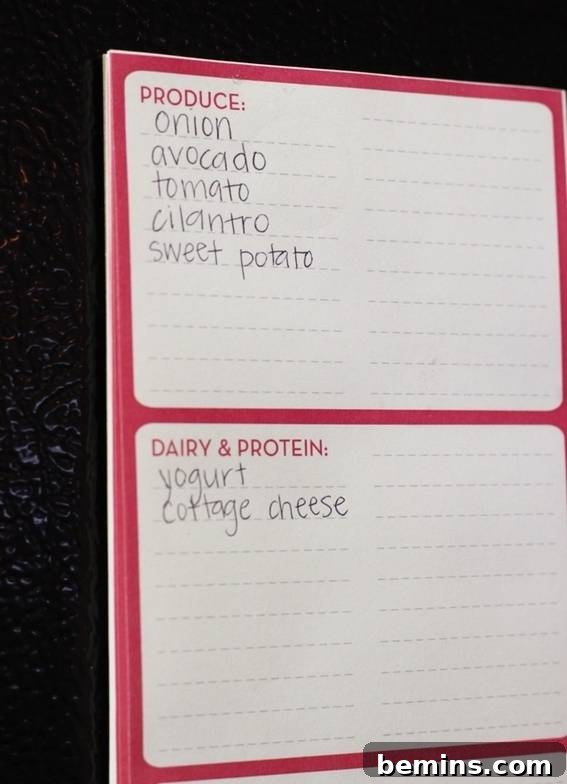 PRODUCE:
onion
avocado
tomato
cilantro
sweet potato
DAIRY & PROTEIN:
yogurt
cottage cheese
bemins.com